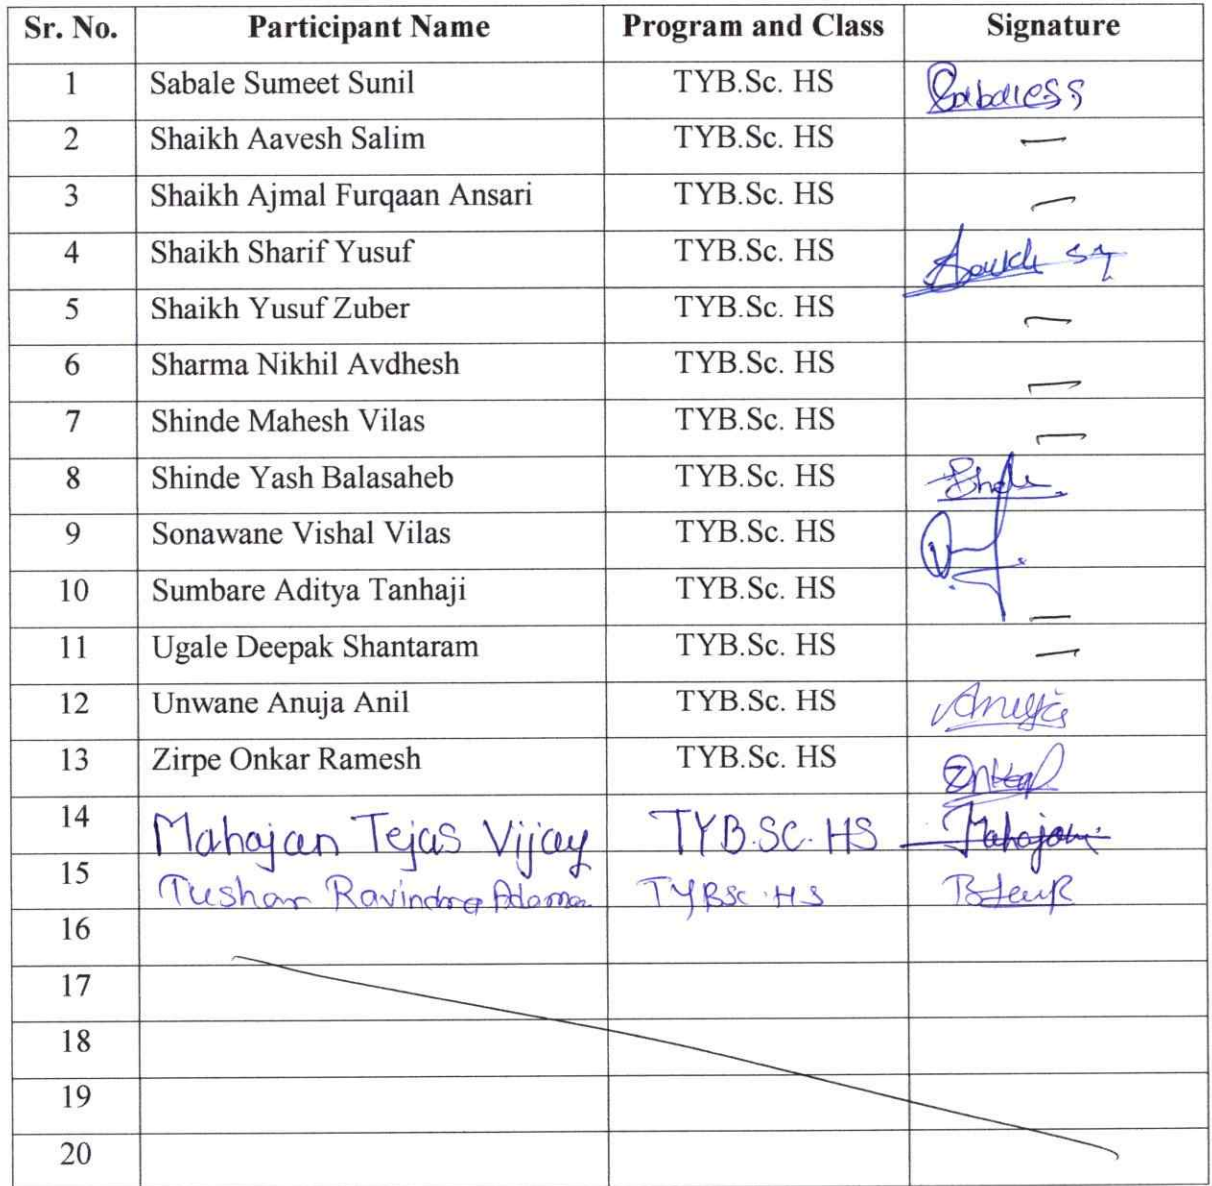 Sr. No. Participant Name Program and Class Signature
1 Sabale Sumeet Sunil TYB.Sc. HS
2 Shaikh Aavesh Salim TYB.Sc. HS —
3 Shaikh Ajmal Furqaan Ansari TYB.Sc. HS —
4 Shaikh Sharif Yusuf TYB.Sc. HS
5 Shaikh Yusuf Zuber TYB.Sc. HS —
6 Sharma Nikhil Avdhesh TYB.Sc. HS —
7 Shinde Mahesh Vilas TYB.Sc. HS —
8 Shinde Yash Balasaheb TYB.Sc. HS
9 Sonawane Vishal Vilas TYB.Sc. HS
10 Sumbare Aditya Tanhaji TYB.Sc. HS —
11 Ugale Deepak Shantaram TYB.Sc. HS —
12 Unwane Anuja Anil TYB.Sc. HS Anuja
13 Zirpe Onkar Ramesh TYB.Sc. HS
14 Mahajan Tejas Vijay TYB.SC. HS
15 Tushar Ravindra TYBSc. HS
16
17
18
19
20